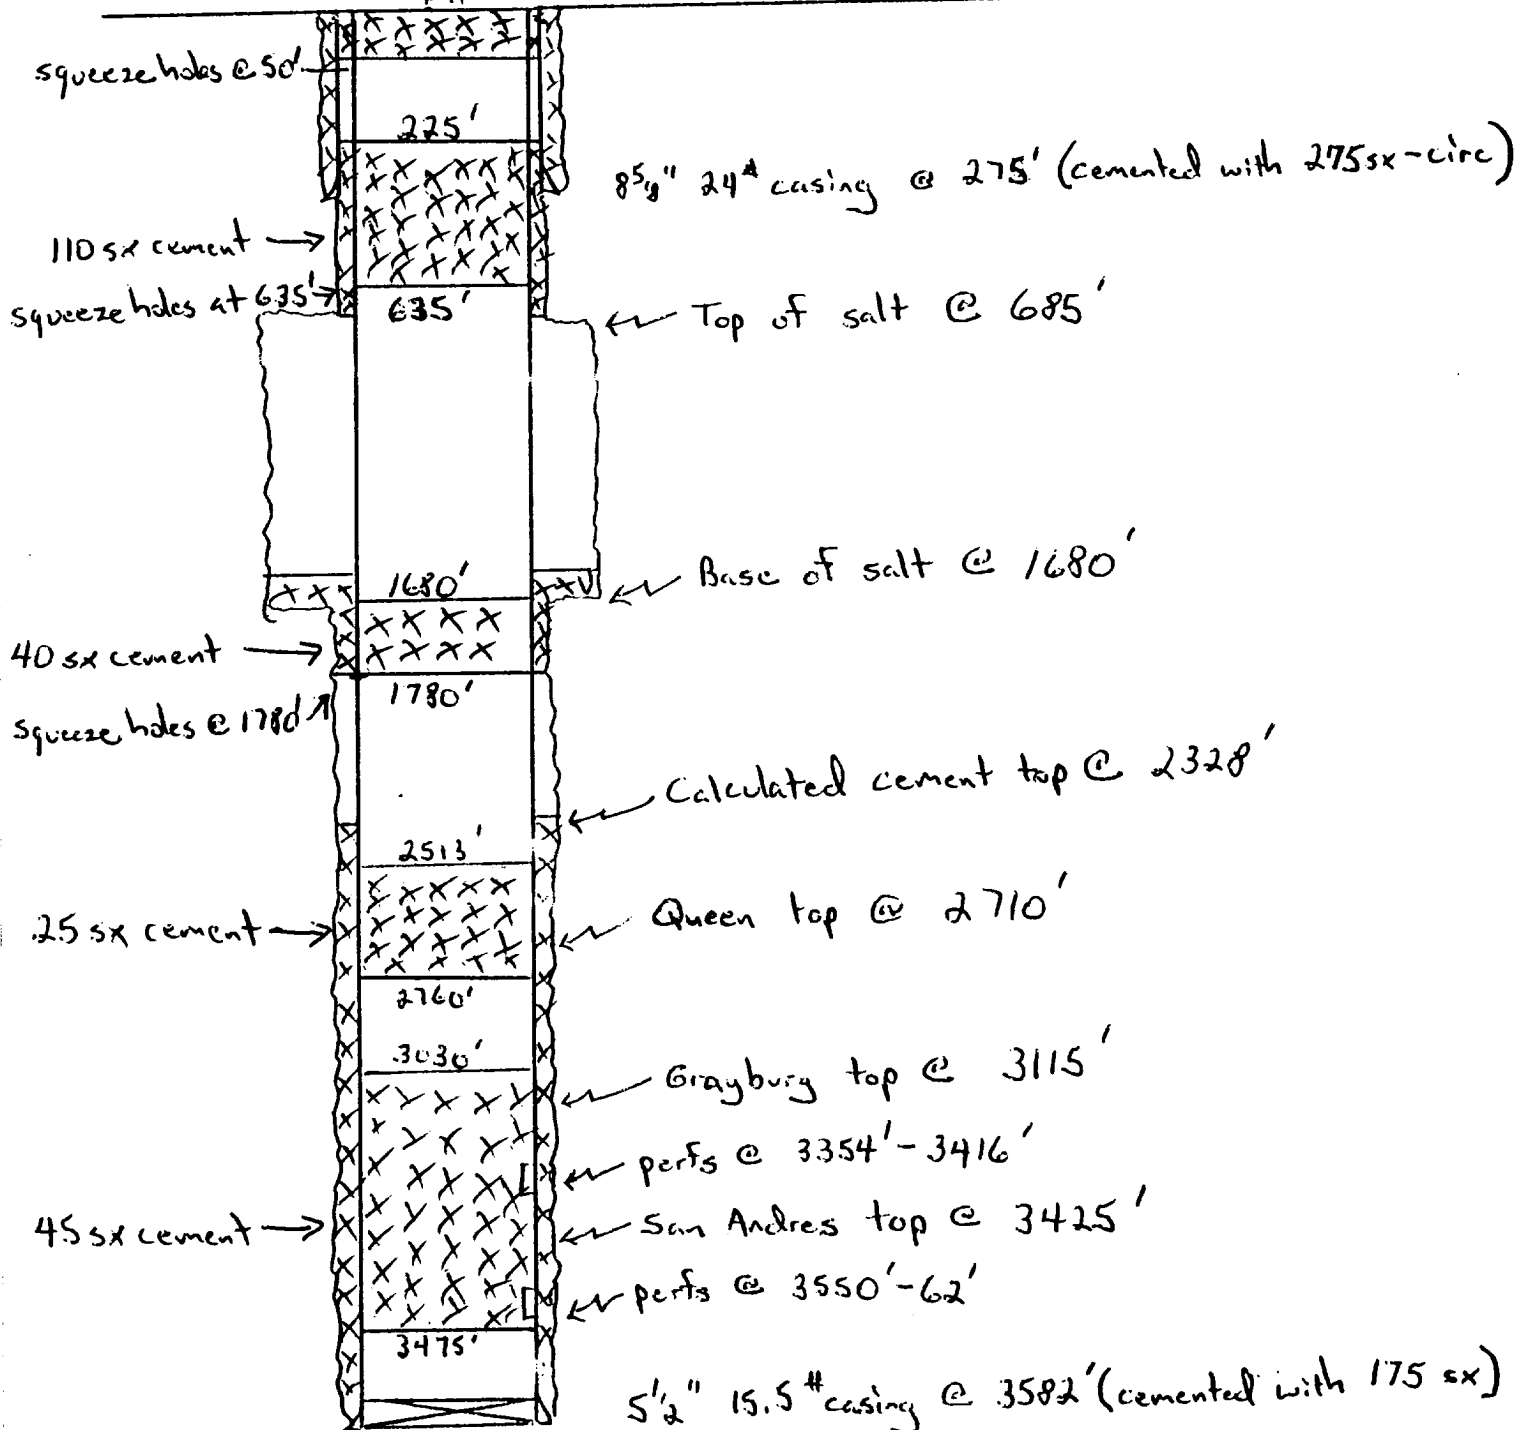 squeeze holes @ 50'
225'
8 5/8" 24# casing @ 275' (cemented with 275sx-circ)
110 sx cement
squeeze holes at 635'
635'
Top of salt @ 685'
1680'
Base of salt @ 1680'
40 sx cement
1780'
squeeze holes @ 1780'
Calculated cement top @ 2328'
2513'
25 sx cement
Queen top @ 2710'
2760'
3030'
Grayburg top @ 3115'
perfs @ 3354'-3416'
45 sx cement
San Andres top @ 3425'
perfs @ 3550'-62'
3475'
5 1/2" 15.5# casing @ 3582' (cemented with 175 sx)